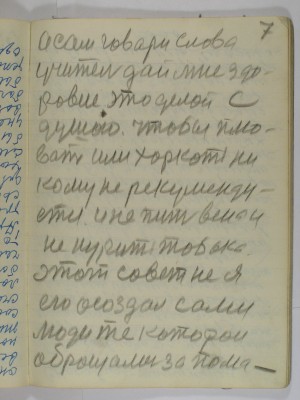 7
и сам говари слова
учител дай мне здо-
ровие это делой с
душою. чтобы плю-
ват или харкоти ни
кому не рекуменду-
ети. и не пит вена и
не курити товака.
этот совет не я
его создал сами
люди те которои
оброщалис за пома-